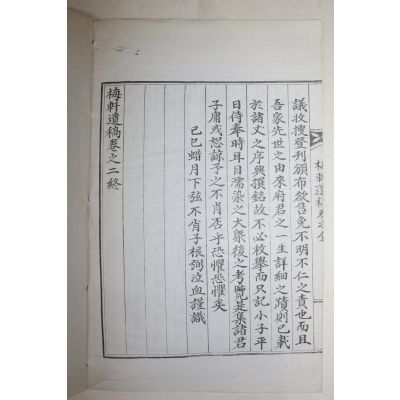 梅軒遺稿卷之全
議收搜登刋頒布欲㫮免不明不仁之責也而且
吾家先世之由來府君之一生詳細之蹟則已載
於諸丈之序與撰銘故不必枚擧而只記小子平
日侍奉時耳目濡染之大槩後之考覽是集諸君
子庸或恕諒予之不肖否乎恐懼恐懼矣
己巳蜡月下弦不肖子根弼泣血謹識
梅軒遺稿卷之二終